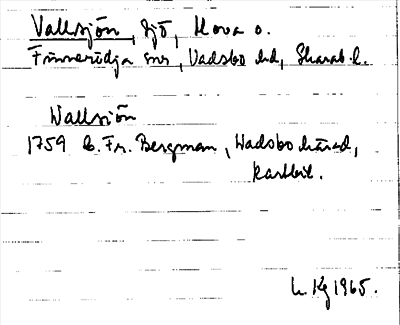 Vallsjön, sjö, Hova o.
Finnerödja snr, Vadsbo hd, Skarab. l.
Wallsiön
1759 C. Fr. Bergman, Wadsbo härad,
kartbil.
L. Kg 1965.